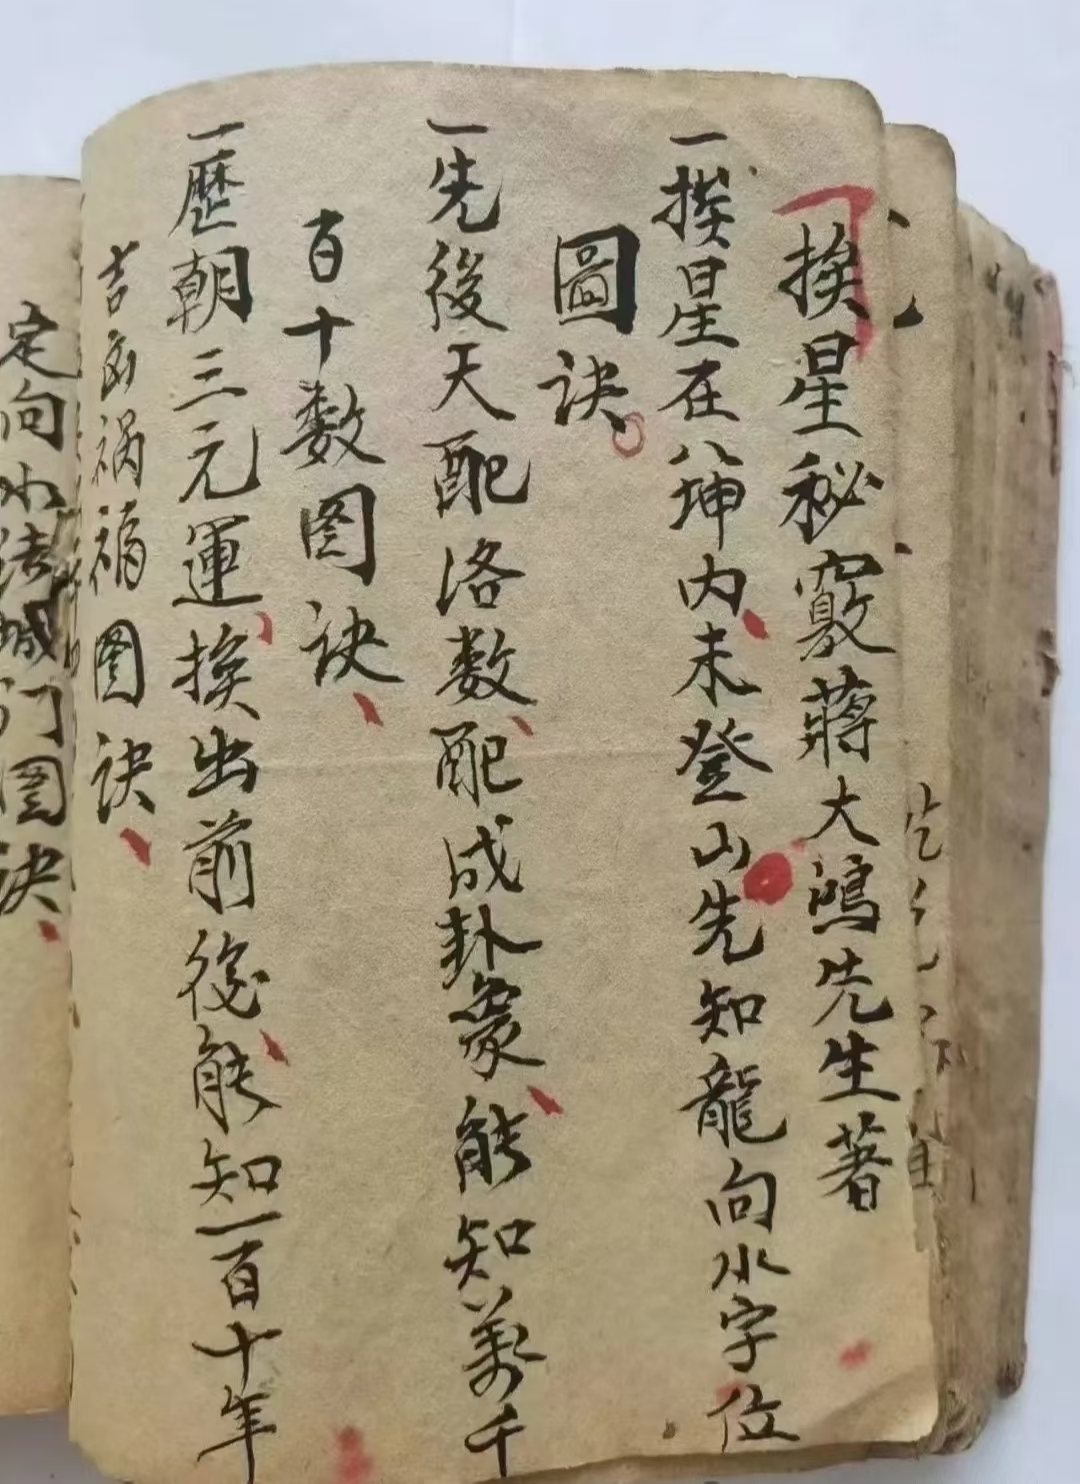 挨星秘竅蔣大鴻先生著
一挨星在八坤内未登山先知龍向水字位
圖訣
一先後天配洛数配成卦象能知萬千
百十数图訣
一歷朝三元運挨出前後能知一百十年
吉凶禍福圖訣
定向水法城门图訣